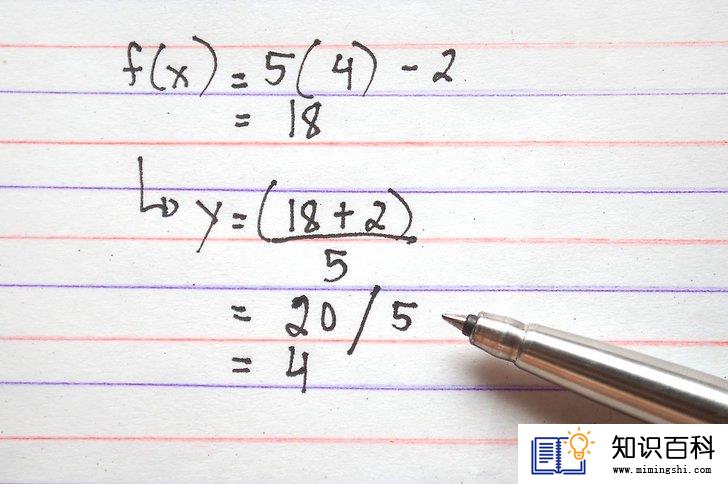 f(x) = 5(4) - 2
= 18
↳ y = (18 + 2)
5
= 20 / 5
= 4
知识百科
www.mimingshi.com